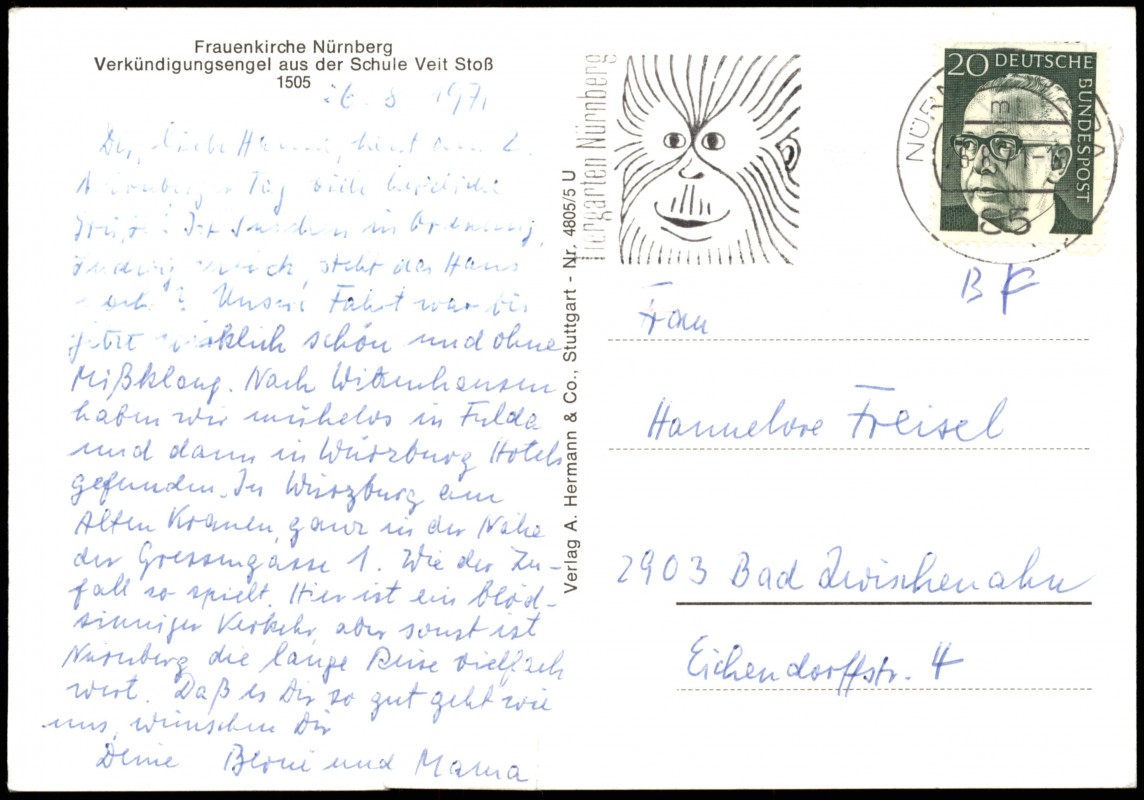 Frauenkirche Nürnberg
Verkündigungsengel aus der Schule Veit Stoß
1505
26. 8. 1971
Dir, liebe Hanne, heut am 2.
Nürnberger Tag viele herzliche
Grüße! Ist in Ordnung,
steht das Haus
noch? Unsere Fahrt war bis
jetzt wirklich schön und ohne
Mißklang. Nach Witzenhausen
haben wir mühelos in Fulda
und dann in Würzburg Hotels
gefunden. In Würzburg am
Alten Kranen, ganz in der Nähe
der Gressengasse 1. Wie der Zu-
fall so spielt. Hier ist ein blöd-
sinniger Verkehr, aber sonst ist
Nürnberg die lange Reise vielfach
wert. Daß es Dir so gut geht wie
uns, wünschen Dir
Deine Berni und Mama
Verlag A. Hermann & Co., Stuttgart - Nr. 4805/5 U
Tiergarten Nürnberg
20 DEUTSCHE
BUNDESPOST
NÜRN
85
B
Frau
Hannelore Freisel
2903 Bad Zwischenahn
Eichendorffstr. 4